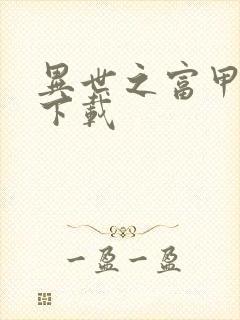 異世之富甲
下載
一盈一盈